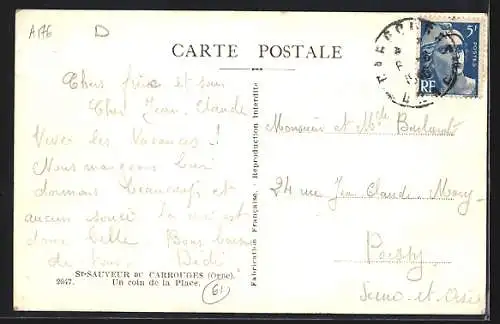 A176 D
CARTE POSTALE
5F
POSTES
RF
Chers frère et sœur
Cher Jean-Claude
Vive les Vacances !
Nous mangeons bien
dormons beaucoup et
aucun souci la vie est
donc belle. Bons baisers
de tous. Dédé
ST-SAUVEUR de CARROUGES (Orne).
2047. Un coin de la Place.
61
Fabrication Française. - Reproduction Interdite
Monsieur et Mme
24 rue Jean Claude-Mary
Poissy
Seine-et-Oise